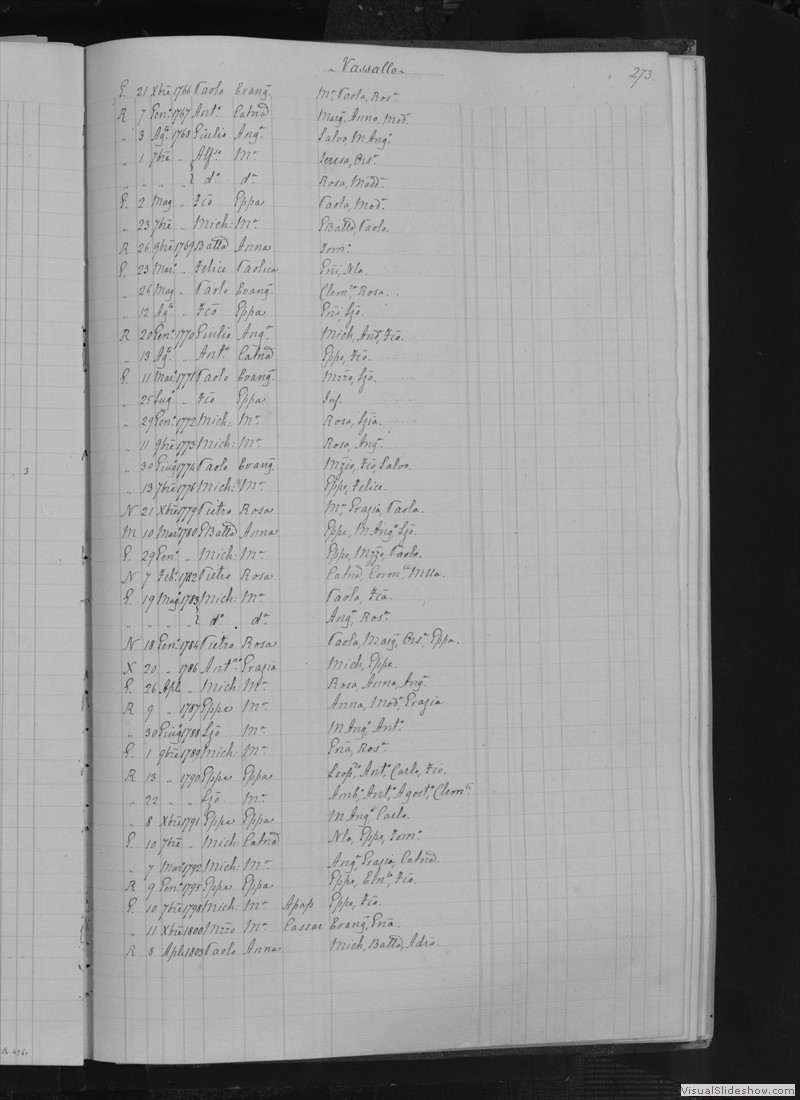 Vassallo 273.
G. 21 Xbre 1766 Paolo Evang. Ma Paola, Rosa
R 7 Genº 1767 Antº Catnd Marg, Anna, Modª
„ 3 Agº 1768 Giulio Angª Salvo, M Angº
„ 1 7bre „ Alfso Mª Teresa, Orsª
„ „ „ „ dº dª Rosa, Madª
G. 2 Mag „ Fco Gppa Paola, Modª
„ 23 7bre „ Mich: Mª GBatta, Paolo
R 26 9bre 1769 Batta Anna Tomº
G. 23 Marº „ Felice Paolica Gni, Nla
„ 26 Mag „ Paolo Evang. Clemte, Rosa
„ 12 Agº „ Fco Gppa Gni, Ljo
R 20 Genº 1770 Giulio Angª Mich, And, Fco
„ 13 Agº „ Antº Catnd Gppe, Fco
G. 11 Marº 1771 Paolo Evang. Mzzo, Ljo
„ 25 Lugº „ Fco Gppa Inf
„ 29 Genº 1772 Mich: Mª Rosa, Ljia
„ 11 9bre 1773 Mich: Mª Rosa, Angª
„ 30 Giugº 1774 Paolo Evang. Mzio, Fco, Salvo
„ 13 7bre 1776 Mich: Mª Gppe, Felice
N 21 Xbre 1779 Pietro Rosa Mª Grazia, Paola
M 10 Marº 1780 GBatta Anna Gppe, M Angº Ljo
G. 29 Genº „ Mich: Mª Gppe, Mzzo, Paolo
N 7 Febº 1782 Pietro Rosa Catnd, Coronta
G. 19 Magº 1783 Mich: Mª Paola, Fca
„ „ „ „ dº dª Angª, Rosª
N 18 Genº 1784 Pietro Rosa Paola, Marg, Orsª, Gppa
X 20 „ 1786 Antno Grazia Mich, Gppe
G. 26 Aple „ Mich: Mª Rosa, Anna, Angª
R 9 „ 1787 Gppe Mª Anna, Modª, Grazia
„ 30 Giugº 1788 Ljo Mª M Angº Antº
G. 1 9bre 1789 Mich: Mª Gna, Rosª
R 13 „ 1790 Gppe Gppa Leopº, Antº, Carlo, Fco
„ 22 „ „ Ljo Mª Ambº, Antº, Agostº, Clemte
„ 8 Xbre 1791 Gppe Gppa M Angº, Carlo
G. 10 7bre „ Mich: Catnd Nla, Gppe, Tomº
„ 7 Marº 1792 Mich: Mª Angª, Grazia, Catnd
R 9 Genº 1795 Gppe Gppa Gppe, Fco
G. 10 7bre 1798 Mich: Mª Apap Gppe, Fco
„ 11 Xbre 1800 Mzzo Mª Cassar Evang, Gna
R 8 Aple 1803 Paolo Anna Mich, Batta, Adrº
3
VisualSlideshow.com